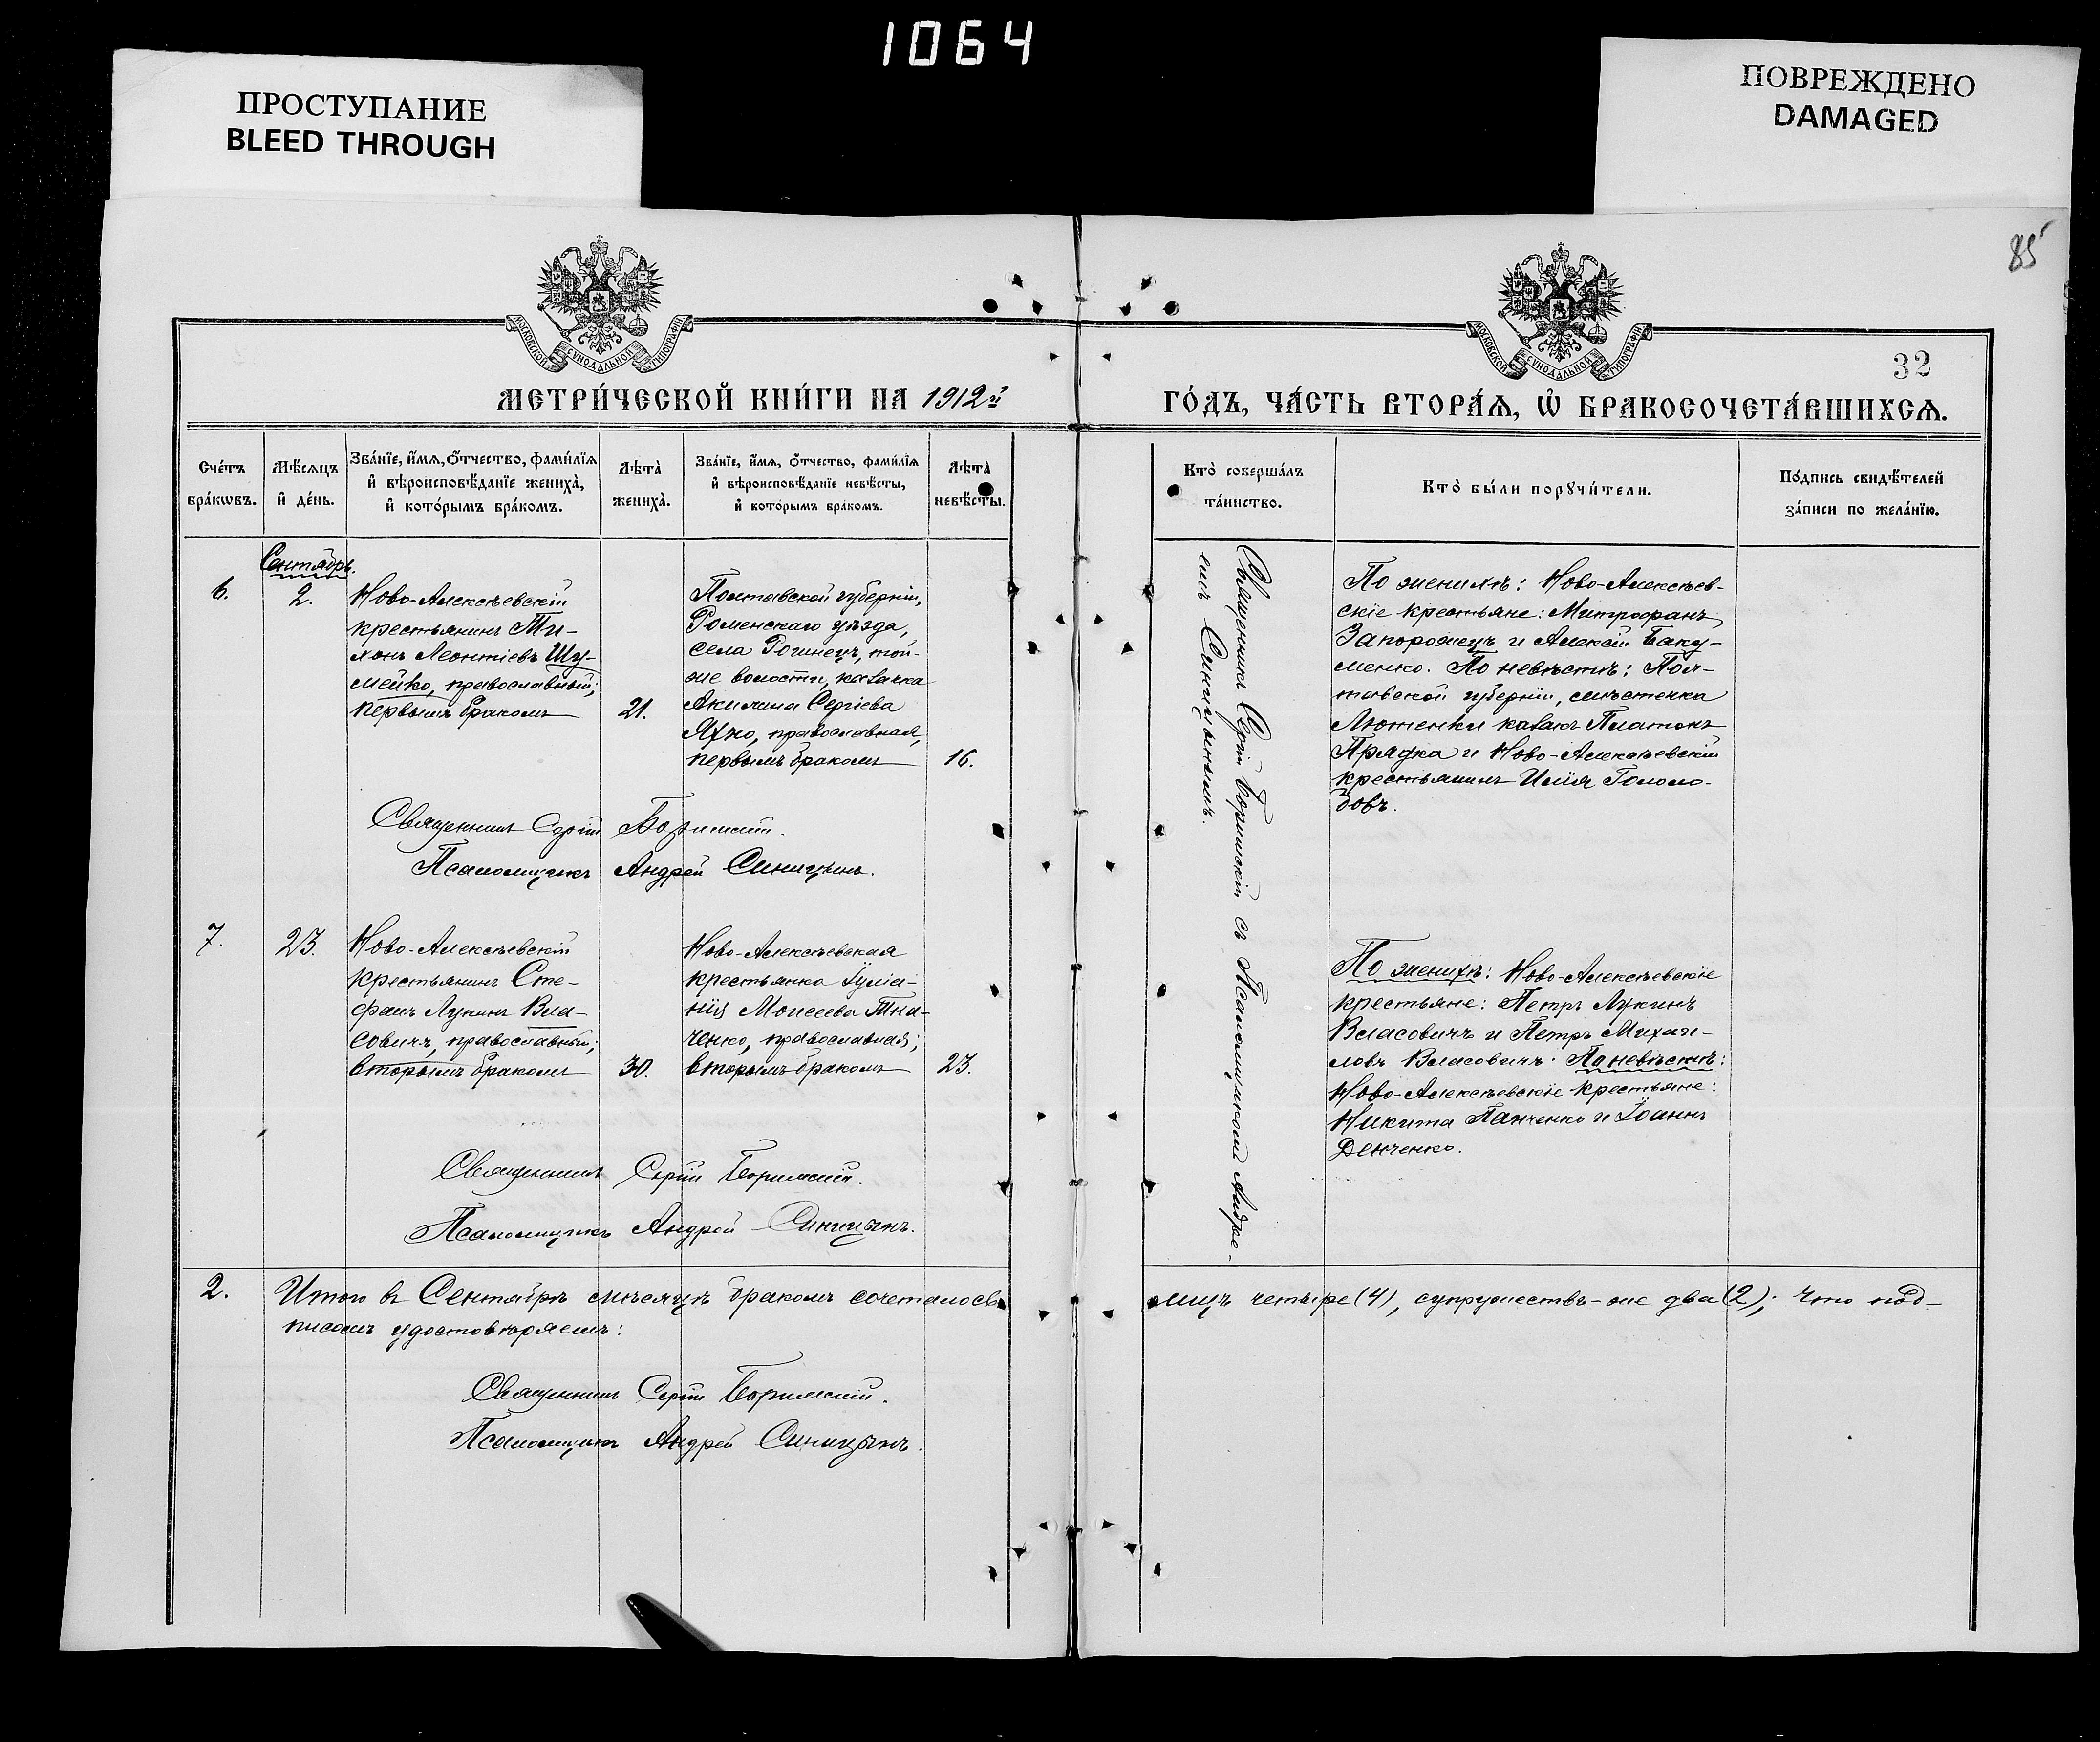 1064
ПРОСТУПАНИЕ
BLEED THROUGH
ПОВРЕЖДЕНО
DAMAGED
85
МОСКОВСКОЙ СУНОДАЛЬНОЙ ТИПОГРАФІИ
МОСКОВСКОЙ СУНОДАЛЬНОЙ ТИПОГРАФІИ
32
МЕТРИ́ЧЕСКОЙ КНИ́ГИ НА 1912й
ГО́ДЪ, ЧА́СТЬ ВТОРА́Ѧ, Ѡ҆ БРАКОСОЧЕТА́ВШИХСѦ.
Сче́тъ
бра́кѡвъ.
Мѣ́сѧцъ
и҆ де́нь.
Зва́нїе, и҆́мѧ, ѻ҆́тчество, фами́лїѧ
и҆ вѣроисповѣ́данїе жениха̀,
и҆ кото́рымъ бра́комъ.
Лѣта̀
жениха̀.
Зва́нїе, и҆́мѧ, ѻ҆́тчество, фами́лїѧ
и҆ вѣроисповѣ́данїе невѣ́сты,
и҆ кото́рымъ бра́комъ.
Лѣта̀
невѣ́сты.
Кто̀ соверша́лъ
та́инство.
Кто̀ бы́ли порꙋчи́тели.
По́дпись свидѣ́телей
за́писи по жела́нїю.
Сентябрь.
6.
2.
Ново-Алексѣевскій
крестьянинъ Ти-
хонъ Леонтіевъ Шу-
мейко, православный;
первымъ бракомъ
21.
Полтавской губерніи,
Роменскаго уѣзда,
села Рогинецъ, той-
же волости, казачка
Акилина Сергіева
Яхно, православная,
первымъ бракомъ
16.
Священникъ Сергій Боримскій съ Псаломщикомъ Андре-
емъ Синицынымъ.
По женихѣ: Ново-Алексѣев-
скіе крестьяне: Митрофанъ
Запорожецъ и Алексій Баку-
менко. По невѣстѣ: Пол-
тавской губерніи, мѣстечка
Лютенки казакъ Платонъ
Прядка и Ново-Алексѣевскій
крестьянинъ Илія Гололо-
бовъ.
Священникъ Сергій Боримскій.
Псаломщикъ Андрей Синицынъ.
7.
23.
Ново-Алексѣевскій
крестьянинъ Сте-
фанъ Лукинъ Вла-
совичъ, православный;
вторымъ бракомъ
30.
Ново-Алексѣевская
крестьянка Іуліа-
нія Моисеева Тка-
ченко, православная;
вторымъ бракомъ
23.
По женихѣ: Ново-Алексѣевскіе
крестьяне: Петръ Лукинъ
Власовичъ и Петръ Михаи-
ловъ Власовичъ. По невѣстѣ:
Ново-Алексѣевскіе крестьяне:
Никита Панченко и Іоаннъ
Демченко.
Священникъ Сергій Боримскій.
Псаломщикъ Андрей Синицынъ.
2.
Итого въ Сентябрѣ мѣсяцѣ бракомъ сочеталось
лицъ четыре (4), супружествъ-же два (2); что под-
писомъ удостовѣряемъ:
Священникъ Сергій Боримскій.
Псаломщикъ Андрей Синицынъ.